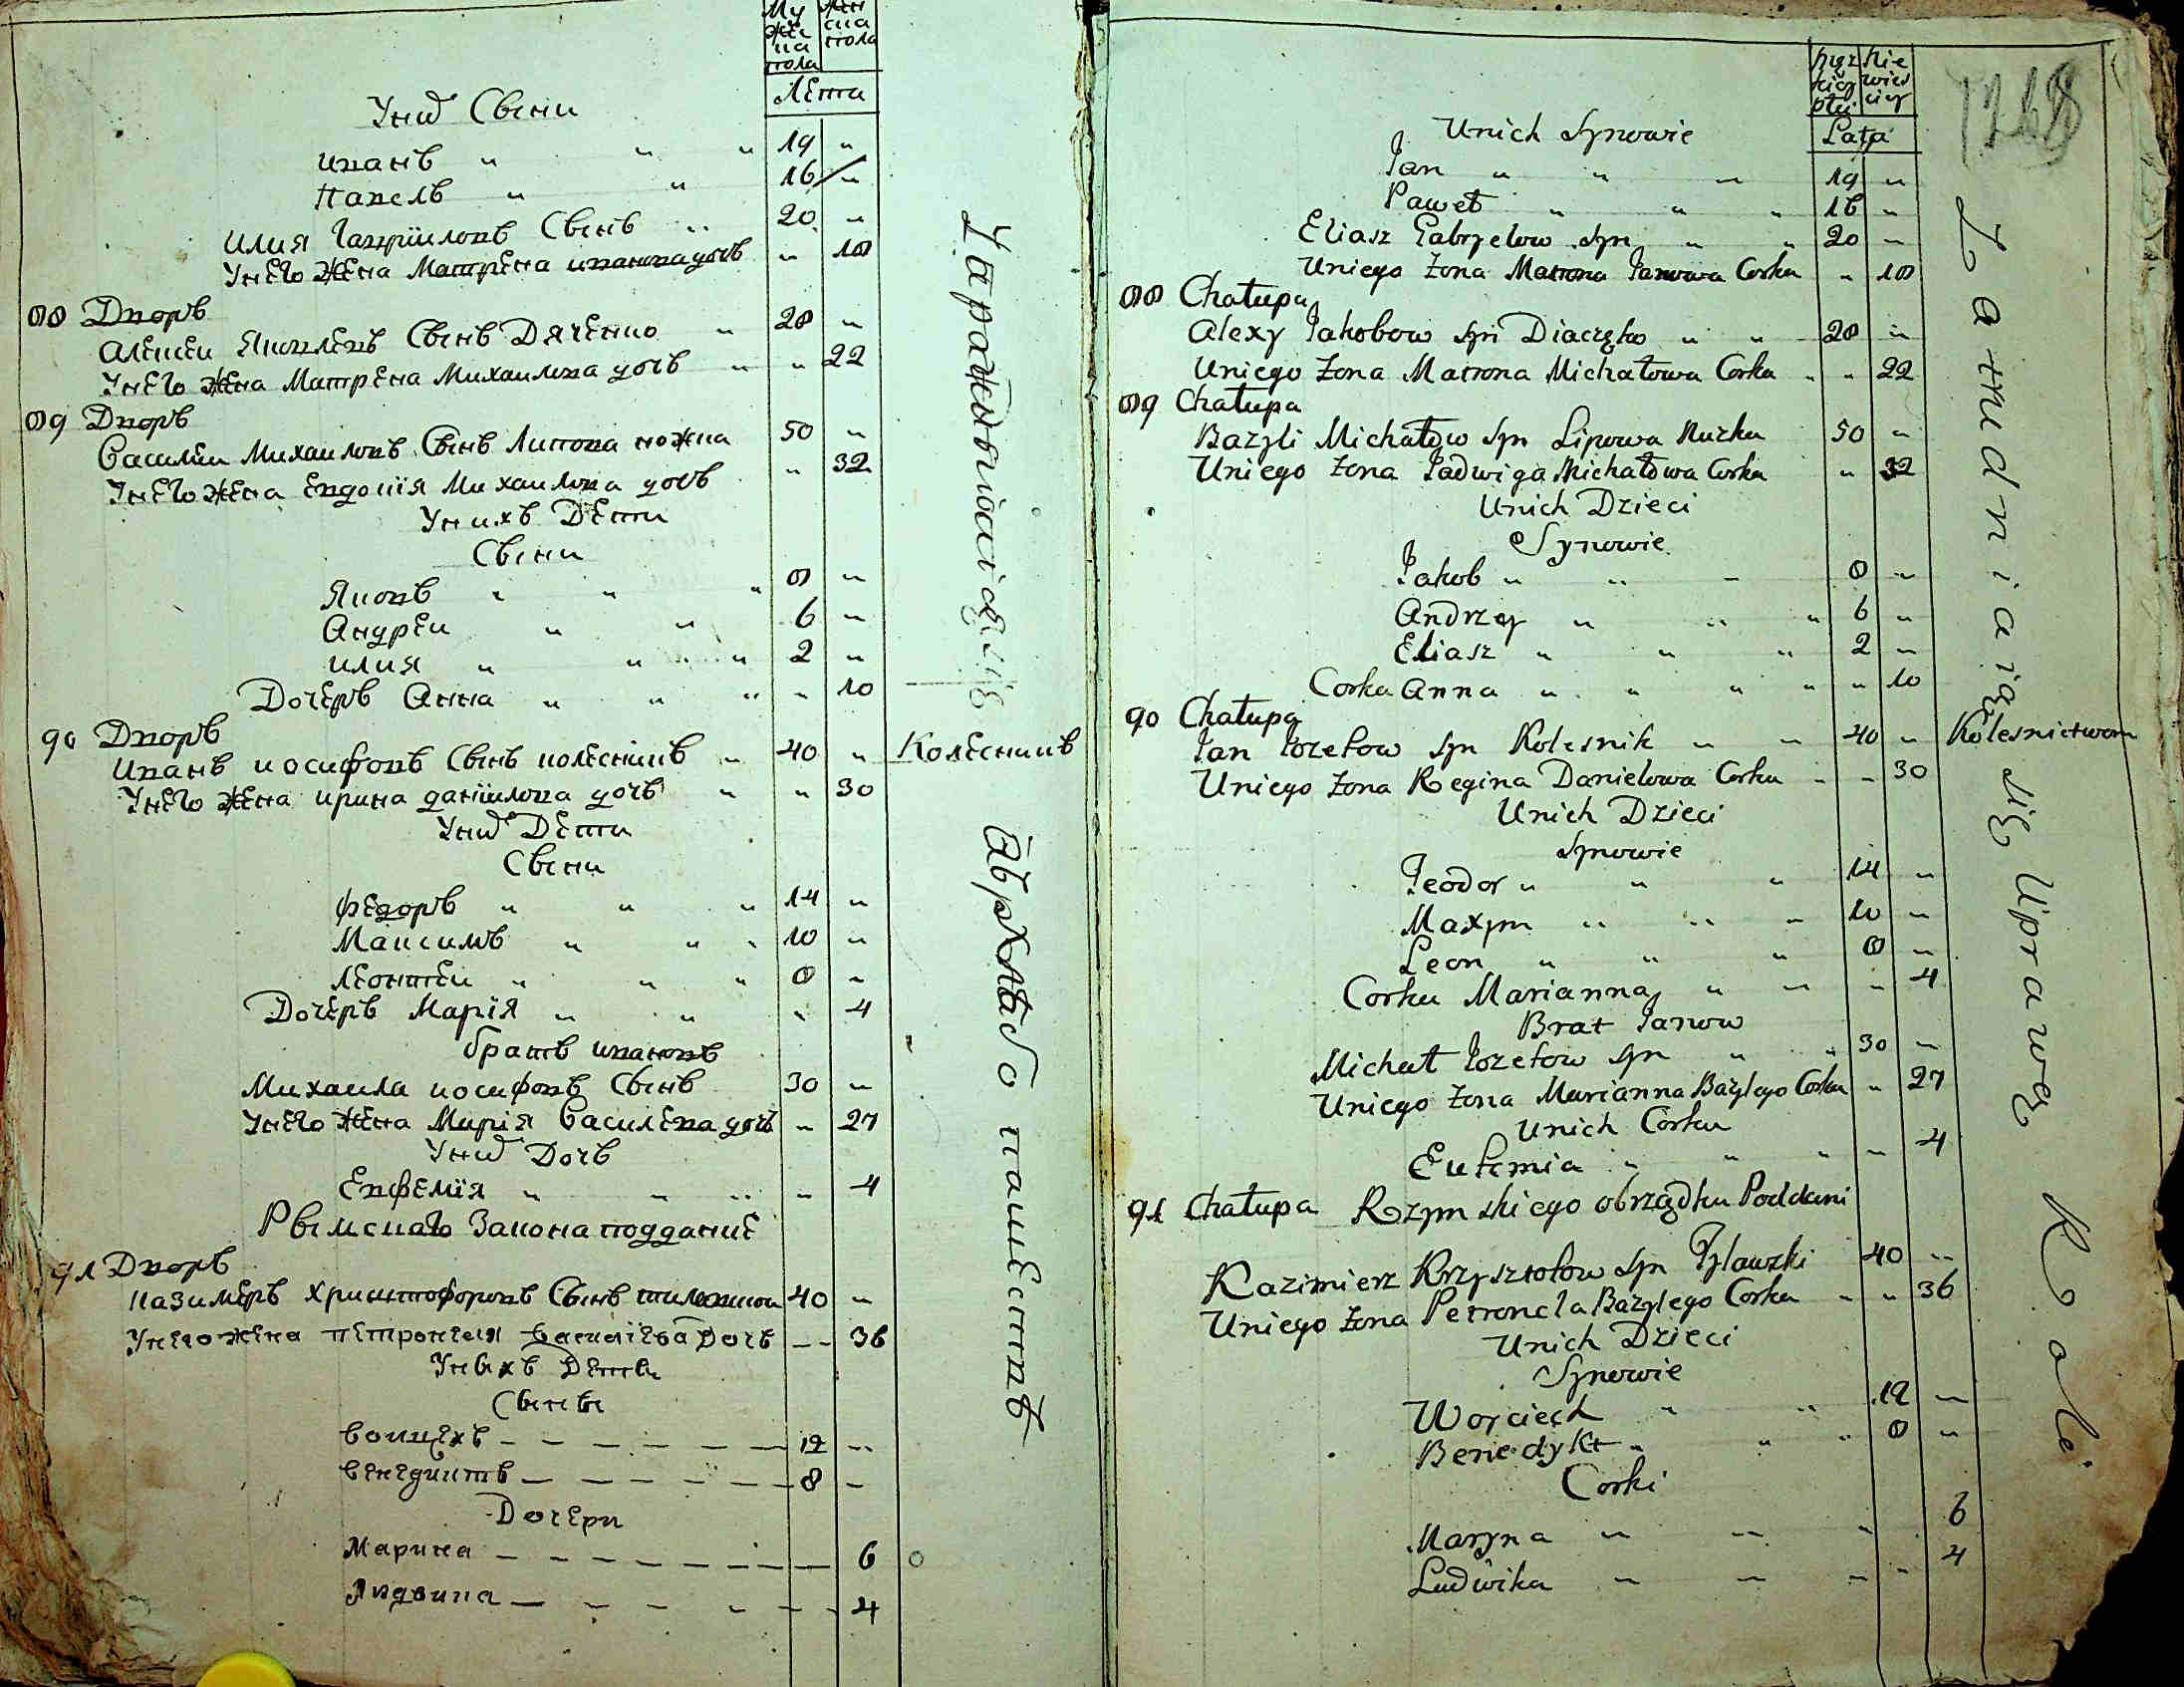 Му
жес
ка
пола
Жен
ска
пола
Лѣта
Унихъ Сыни
Иванъ " " " 19 "
Павелъ " " 16 "
Илия Гаврииловъ Сынъ " 20 "
Унего жена Матрена Иванова дочъ " 18
88 Дворъ
Алексеи Яковлевъ Сынъ Дяченко " 28 "
Унего жена Матрена Михаилова дочъ " " 22
89 Дворъ
Василеи Михаиловъ Сынъ Липова ножка 50 "
Унего жена Евдокия Михаилова дочъ " 32
Унихъ Дети
Сыни
Яковъ " " " 8 "
Андреи " " 6 "
Илия " " " 2 "
Дочеръ Анна " " " " 10
90 Дворъ
Иванъ иосифовъ Сынъ колесникъ " 40 " Колесникъ
Унего жена ирина даниилова дочъ " " 30
Унихъ Дети
Сыни
Федоръ " " " 14 "
Максимъ " " " 10 "
Леонтеи " " " 8 "
Дочеръ Марія " " " 4
братъ ивановъ
Михаила иосифовъ Сынъ 30 "
Унего жена Марія Василева дочъ " 27
Унихъ Дочъ
Евфемія " " " " 4
Рымскаго Закона поддание
91 Дворъ
Казимеръ Христофоровъ Сынъ 40 "
Унего жена петронеля Василева Дочъ — - 36
Унихъ Дети
Сыны
воицехъ — — — — — — 12 "
венедиктъ — — — — — — 8 —
Дочери
Марина — — — — — — — 6
Людвика — — — — — - 4
хлѣбопашествъ
Męz
kiey
płci
Nie
wies
ciey
Lata
1268
Unich Synowie
Jan " " " 19 "
Paweł " " " 16 "
Eliasz Gabryelow syn " " 20 "
Uniego Zona Matrona Janowa Corka " 18
88 Chałupa
Alexy Jakobow syn Diaczęko " " 28 "
Uniego Zona Matrona Michałowa Corka " " 22
89 Chałupa
Bazyli Michałow syn Lipowa Nuzka 50 "
Uniego Zona Jadwiga Michałowa Corka " 32
Unich Dzieci
Synowie
Jakob " " " 8 "
Andrzey " " " 6 "
Eliasz " " " 2 "
Corka Anna " " " " " 10
90 Chałupa
Jan Jozefow syn Kolesnik " " 40 " Kolesnictwom
Uniego Zona Regina Danielowa Corka " " 30
Unich Dzieci
Synowie
Teodor " " " 14 "
Maxym " " " 10 "
Leon " " " 8 "
Corka Marianna " " " 4
Brat Janow
Michał Jozefow syn " " 30 "
Uniego Zona Marianna Bazylego Corka " 27
Unich Corka
Eufemia " " " " 4
91 Chałupa Rzymskiego obrządku Poddani
Kazimierz Krzysztofow syn Tylawski 40 "
Uniego Zona Petronela Bazylego Corka " " 36
Unich Dzieci
Synowie
Woyciech " " 12 —
Benedykt " " " 8 "
Corki
Maryna " " " 6
Ludwika " " " " 4
Zatrudniaią się Uprawą Roli